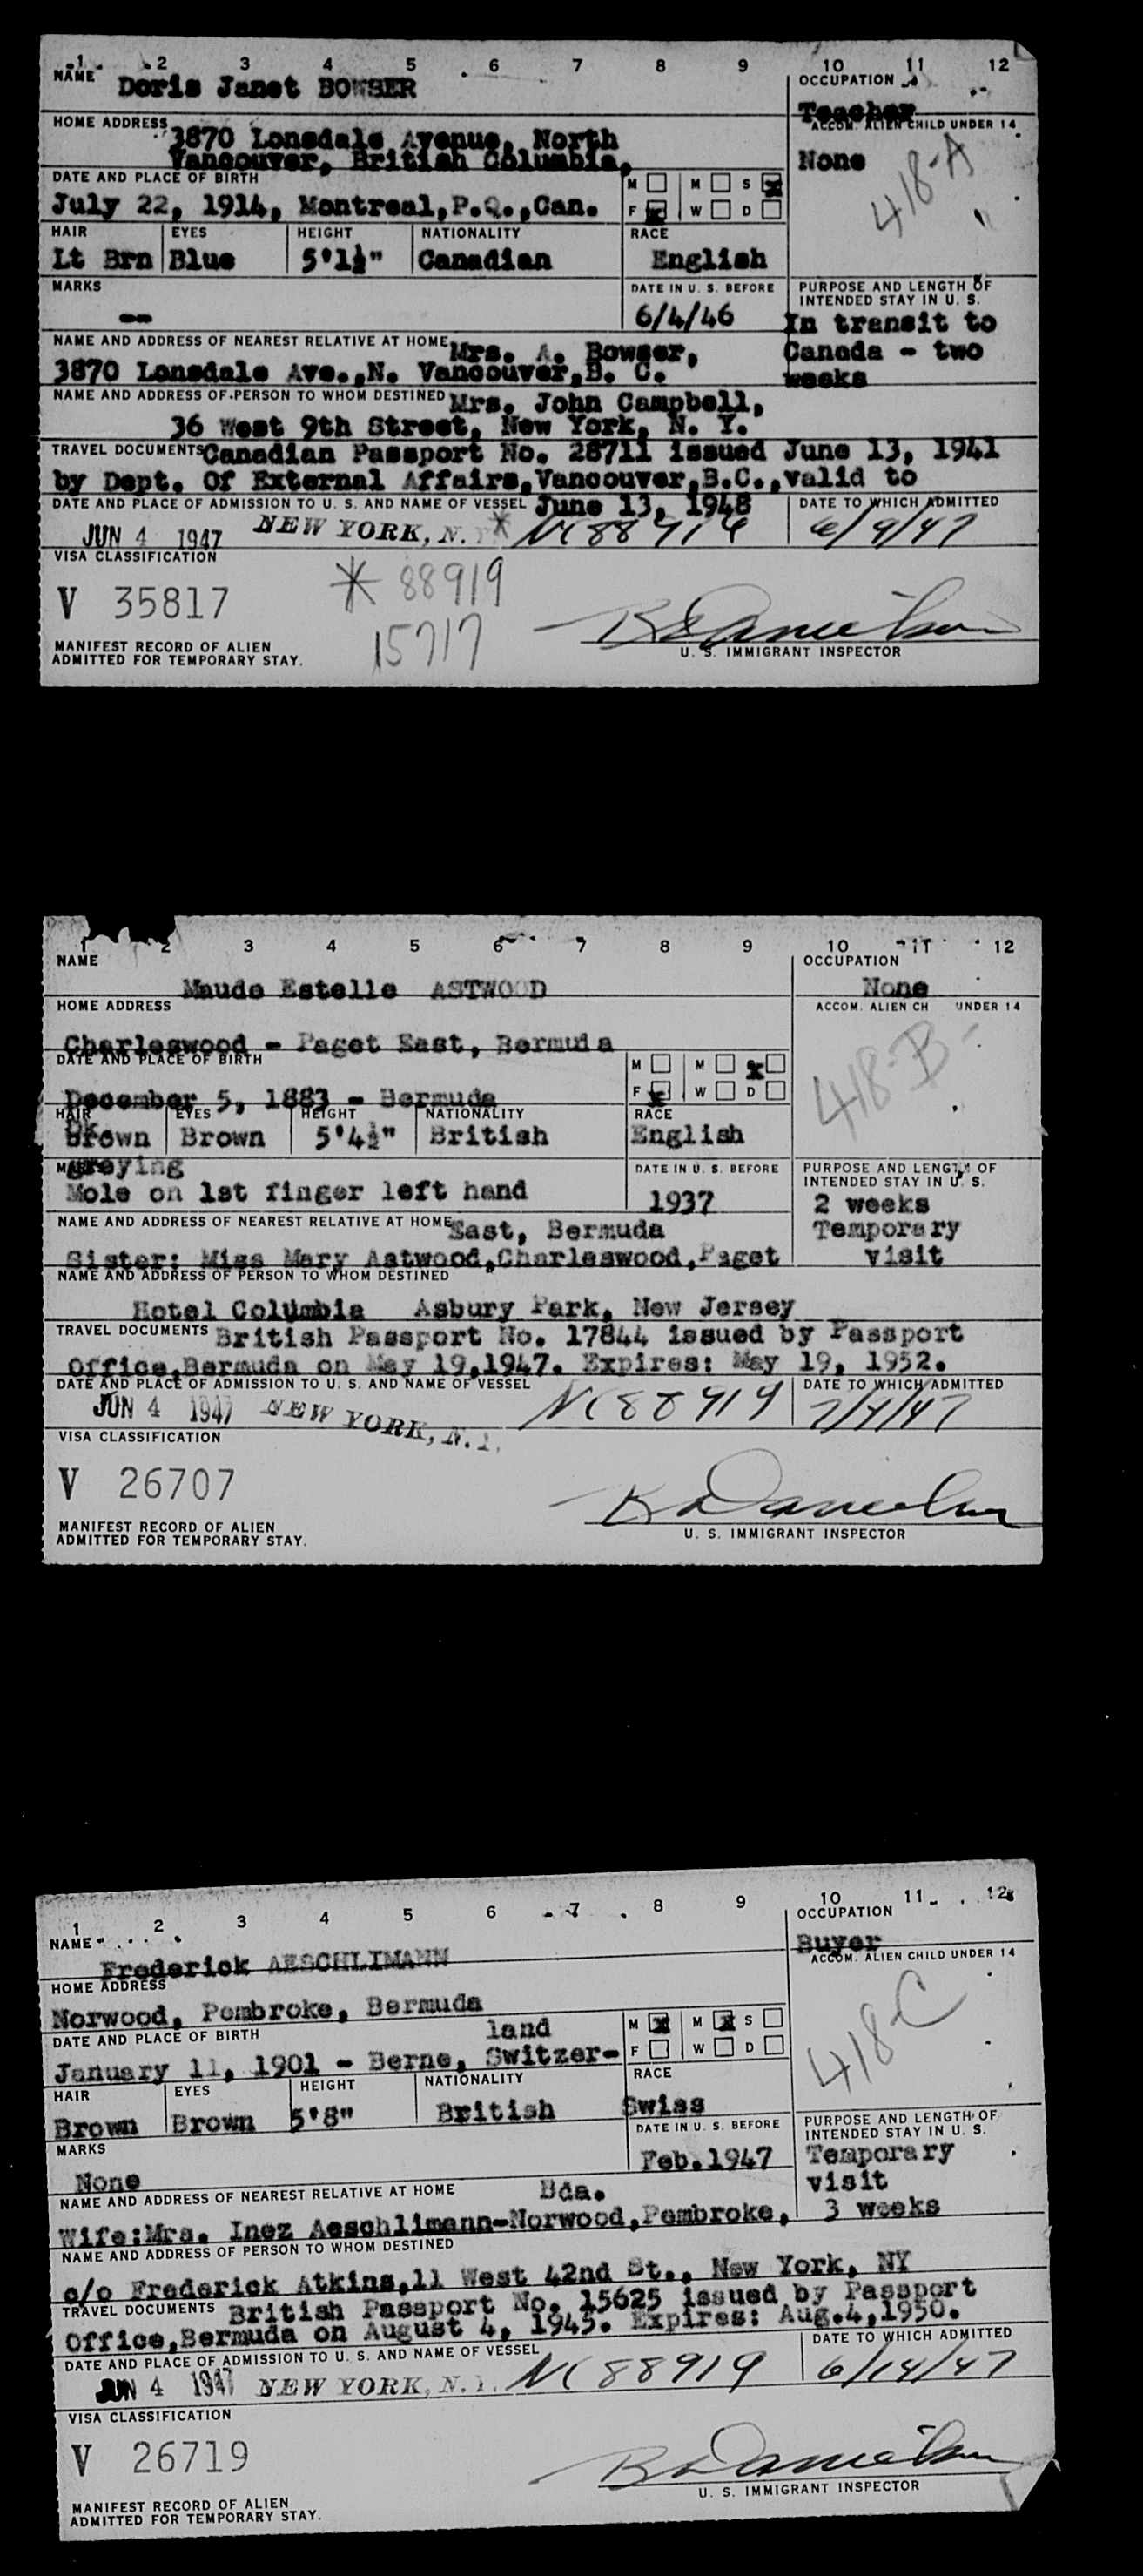 1 2 3 4 5 6 7 8 9 10 11 12
NAME Doris Janet BOWSER
OCCUPATION
Teacher
HOME ADDRESS 3870 Lonsdale Avenue, North
Vancouver, British Columbia,
ACCOM. ALIEN CHILD UNDER 14
None
418-A
DATE AND PLACE OF BIRTH
July 22, 1914, Montreal,P.Q.,Can.
M M S X
F X W D
HAIR EYES HEIGHT NATIONALITY RACE
Lt Brn Blue 5'1½" Canadian English
MARKS
--
DATE IN U. S. BEFORE
6/4/46
PURPOSE AND LENGTH OF
INTENDED STAY IN U. S.
In transit to
Canada - two
weeks
NAME AND ADDRESS OF NEAREST RELATIVE AT HOME Mrs. A. Bowser,
3870 Lonsdale Ave.,N. Vancouver,B. C.
NAME AND ADDRESS OF PERSON TO WHOM DESTINED Mrs. John Campbell,
36 West 9th Street, New York, N. Y.
TRAVEL DOCUMENTS Canadian Passport No. 28711 issued June 13, 1941
by Dept. Of External Affairs,Vancouver,B.C.,valid to
DATE AND PLACE OF ADMISSION TO U. S. AND NAME OF VESSEL June 13, 1948
DATE TO WHICH ADMITTED
JUN 4 1947 NEW YORK, N. * NC88714 6/9/47
VISA CLASSIFICATION
V 35817
* 88919
15717
MANIFEST RECORD OF ALIEN
ADMITTED FOR TEMPORARY STAY.
U. S. IMMIGRANT INSPECTOR
1 2 3 4 5 6 7 8 9 10 11 12
NAME
Maude Estelle ASTWOOD
OCCUPATION
None
HOME ADDRESS
Charleswood - Paget East, Bermuda
ACCOM. ALIEN CH UNDER 14
418-B
DATE AND PLACE OF BIRTH
December 5, 1883 - Bermuda
M M X
F X W D
HAIR EYES HEIGHT NATIONALITY RACE
Dk
Brown Brown 5'4½" British English
greying
MARKS
Mole on 1st finger left hand
DATE IN U. S. BEFORE
1937
PURPOSE AND LENGTH OF
INTENDED STAY IN U. S.
2 weeks
Temporary
visit
NAME AND ADDRESS OF NEAREST RELATIVE AT HOME East, Bermuda
Sister: Miss Mary Astwood,Charleswood,Paget
NAME AND ADDRESS OF PERSON TO WHOM DESTINED
Hotel Columbia Asbury Park, New Jersey
TRAVEL DOCUMENTS British Passport No. 17844 issued by Passport
Office,Bermuda on May 19,1947. Expires: May 19, 1952.
DATE AND PLACE OF ADMISSION TO U. S. AND NAME OF VESSEL
DATE TO WHICH ADMITTED
JUN 4 1947 NEW YORK, N.Y. NC88919 7/4/47
VISA CLASSIFICATION
V 26707
MANIFEST RECORD OF ALIEN
ADMITTED FOR TEMPORARY STAY.
U. S. IMMIGRANT INSPECTOR
1 2 3 4 5 6 7 8 9 10 11 12
NAME
Frederick AESCHLIMANN
OCCUPATION
Buyer
HOME ADDRESS
Norwood, Pembroke, Bermuda
ACCOM. ALIEN CHILD UNDER 14
418-C
DATE AND PLACE OF BIRTH land
January 11, 1901 - Berne, Switzer-
M X M X S
F W D
HAIR EYES HEIGHT NATIONALITY RACE
Brown Brown 5'8" British Swiss
MARKS
None
DATE IN U. S. BEFORE
Feb.1947
PURPOSE AND LENGTH OF
INTENDED STAY IN U. S.
Temporary
visit
3 weeks
NAME AND ADDRESS OF NEAREST RELATIVE AT HOME Bda.
Wife:Mrs. Inez Aeschlimann-Norwood,Pembroke,
NAME AND ADDRESS OF PERSON TO WHOM DESTINED
c/o Frederick Atkins,11 West 42nd St., New York, NY
TRAVEL DOCUMENTS British Passport No. 15625 issued by Passport
Office,Bermuda on August 4, 1945. Expires: Aug.4,1950.
DATE AND PLACE OF ADMISSION TO U. S. AND NAME OF VESSEL
DATE TO WHICH ADMITTED
JUN 4 1947 NEW YORK, N.Y. NC88919 6/14/47
VISA CLASSIFICATION
V 26719
MANIFEST RECORD OF ALIEN
ADMITTED FOR TEMPORARY STAY.
U. S. IMMIGRANT INSPECTOR